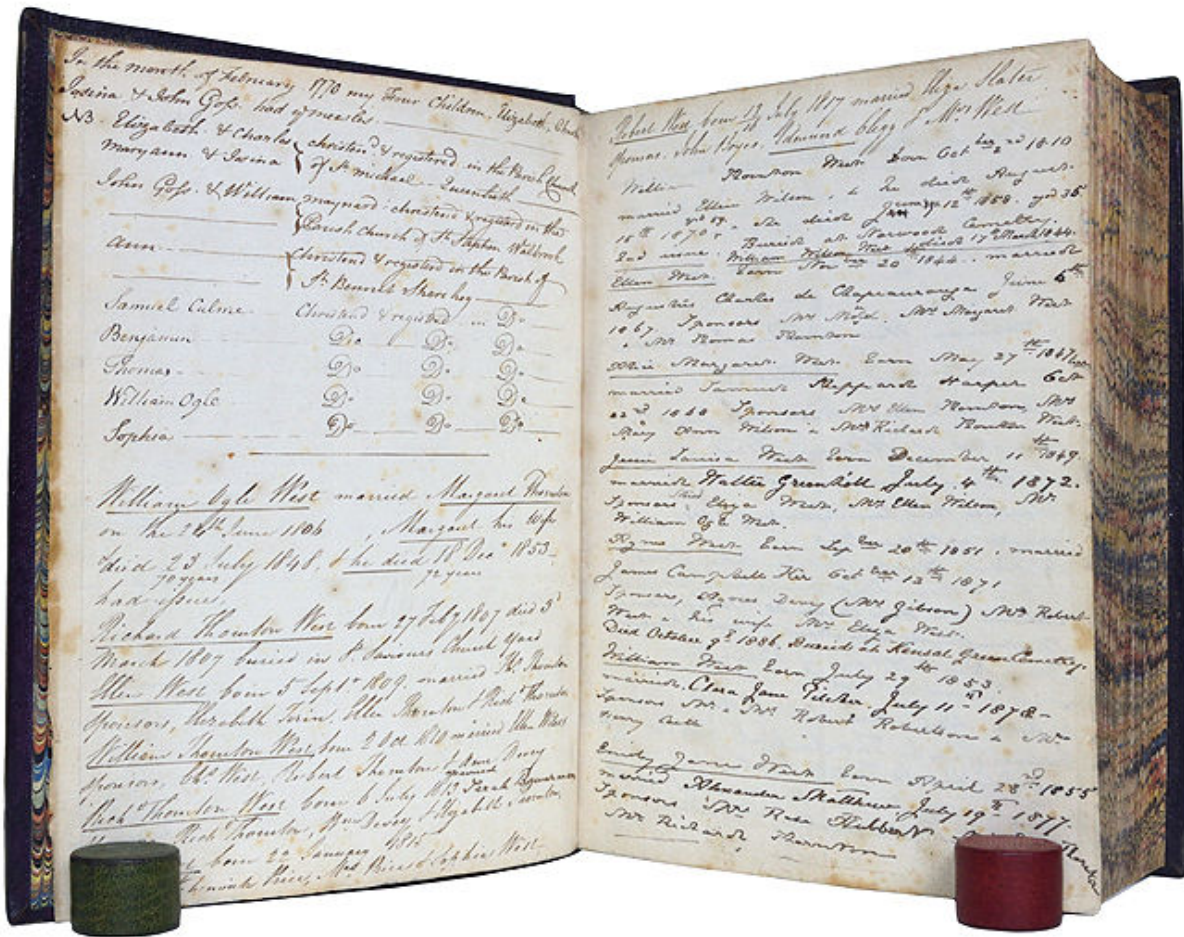 In the month of February 1770 my Four Children, Elizabeth,
Josina & John Goss. had ye measles
NB. Elizabeth & Charles christend & registered in the Parish Church
Maryann & Josina of St. michael
John Goss. & William maynard: christend & registered in the
Parish Church of St. Stephen Walbrook
Ann christend & registered in the Parish of
St. Bennet Sherehog
Samuel Culme Christend & registed in Do
Benjamin Do Do Do
Thomas Do Do Do
William Ogle Do Do Do
Sophia Do Do Do
William Ogle West married Margaret Thornton
on the 24th June 1806, Margaret his Wife
died 23 July 1848, & he died 18 Dec 1853
70 years 72 years
had issue,
Richard Thornton West born 27 Feby 1807 died 3d
March 1807 buried in St Saviours Church Yard
Ellen West born 5 Septr 1809. married Thornton
Sponsors, Elizabeth Ellen Thornton & Richd Thornton
William Thornton West born 2 Oct 1810 married Ellen Wilson
Sponsors, West, Robert Thornton & Ann
Richd Thornton West born 6 July 1813 married Sarah
Richd Thornton, & Elizabeth Thornton
born 22 January 1815
Price, Mrs Price & Sophia West
Robert West born 13 July 1817 married Eliza Slater
Sponsors. John Edmund Clegg & Mrs West
William Thornton West born Octber 2nd 1810
married Ellen Wilson, & he died August
15th 1870 she died June 12th 1858. 35
Buried at Norwood Cemetery.
William Wilson West died 17 March 1844.
Ellen West. born 20th 1844. married
Charles de Chapeaurouge June 6th
1867. Sponsors Mrs Margaret West
& Mr Thomas Thornton
Margaret West born May 27th 1847
married Samuel Sheppard Harper Oct
22nd 1868 Sponsors Mrs Ellen Thornton, Mrs
Mary Ann Wilson & Mr Richard Thornton West.
Louisa West born December 11th 1849.
married Walter Greenhill July 4th. 1872.
Sponsors, Eliza West, Mrs Ellen Wilson, Mr
William Ogle West.
Agnes West born Sepber 20th 1851. married
James Campbell Ker Octber 12th 1871
Sponsors, Agnes (Mrs Gibson) Mr Robert
West & his wife Mrs Eliza West.
Died October 9th 1886. Buried at Kensal Green Cemetery.
William West born July 29th 1853.
married. Clara Jane Pilcher. July 11th 1878 -
Sponsors Mr & Mrs Robert Robertson & Mr
Henry
Emily Jane West born April 28th 1855
married Alexander Matthew July 19th 1877.
Sponsors Mrs Rosa Hibbert
Mr Richard Thornton